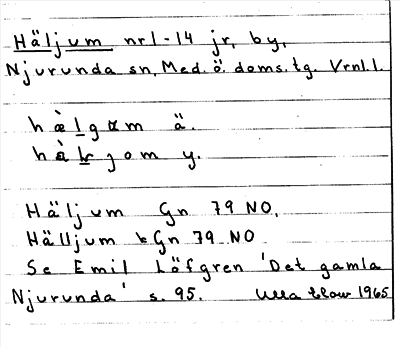 Häljum nr 1-14 jr, by,
Njurunda sn, Med. ö. doms. tg. Vrnl. l.
hàlgɑm ä.
hàljom y.
Häljum Gn 79 NO,
Hälljum Gn 79 NO
Se Emil Löfgren 'Det gamla
Njurunda' s. 95. Ulla 1965